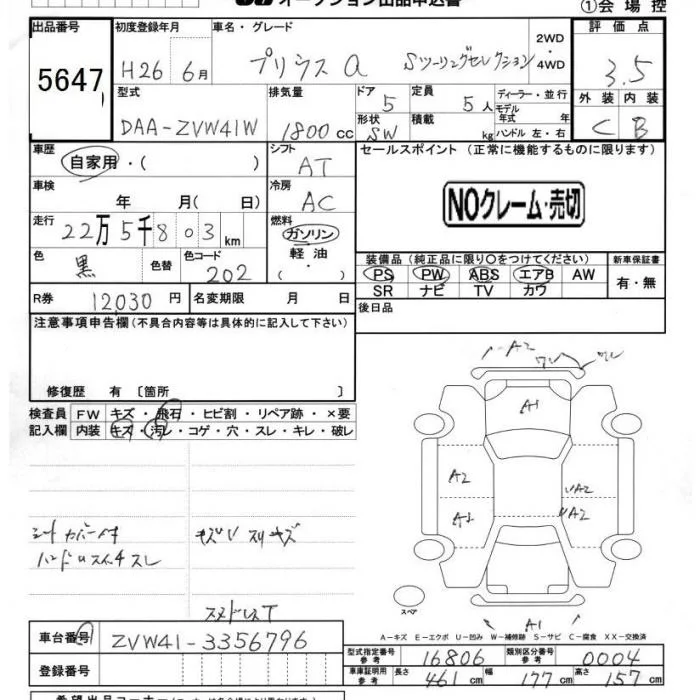 オークション出品申込書
①会場控
出品番号 初度登録年月 車名・グレード 2WD・4WD 評価点
5647 H26 6月 プリウスα Sツーリングセレクション 3.5
型式 排気量 ドア 5 定員 5人 ディーラー・並行 外装 内装
DAA-ZVW41W 1800cc 形状 SW 積載 kg モデル年式 年 ハンドル 左・右 C B
車歴 自家用・( ) シフト AT セールスポイント (正常に機能するものに限ります)
車検 年 月( 日) 冷房 AC NOクレーム・売切
走行 22万5千803km 燃料 ガソリン・軽油・
色 黒 色替 色コード 202 装備品(純正品に限り○をつけてください) 新車保証書
PS PW ABS エアB AW 有・無
SR ナビ TV カワ
R券 12,030円 名変期限 月 日 後日品
注意事項申告欄(不具合内容等は具体的に記入して下さい)
修復歴 有 〔箇所 〕
検査員 FW キズ・飛石・ヒビ割・リペア跡・×要
記入欄 内装 キズ・汚レ・コゲ・穴・スレ・キレ・破レ
A2
A1
A2
A2
A1
シートカバー付 キズ スリキズ
スタッドレスT
A1
スペア
A-キズ E-エクボ U-凹み W-補修跡 S-サビ C-腐食 XX-交換済
車台番号 ZVW41-3356796
型式指定番号 参考 16806 類別区分番号 参考 0004
登録番号
車庫証明用 参考 長さ 461cm 幅 177cm 高さ 157cm